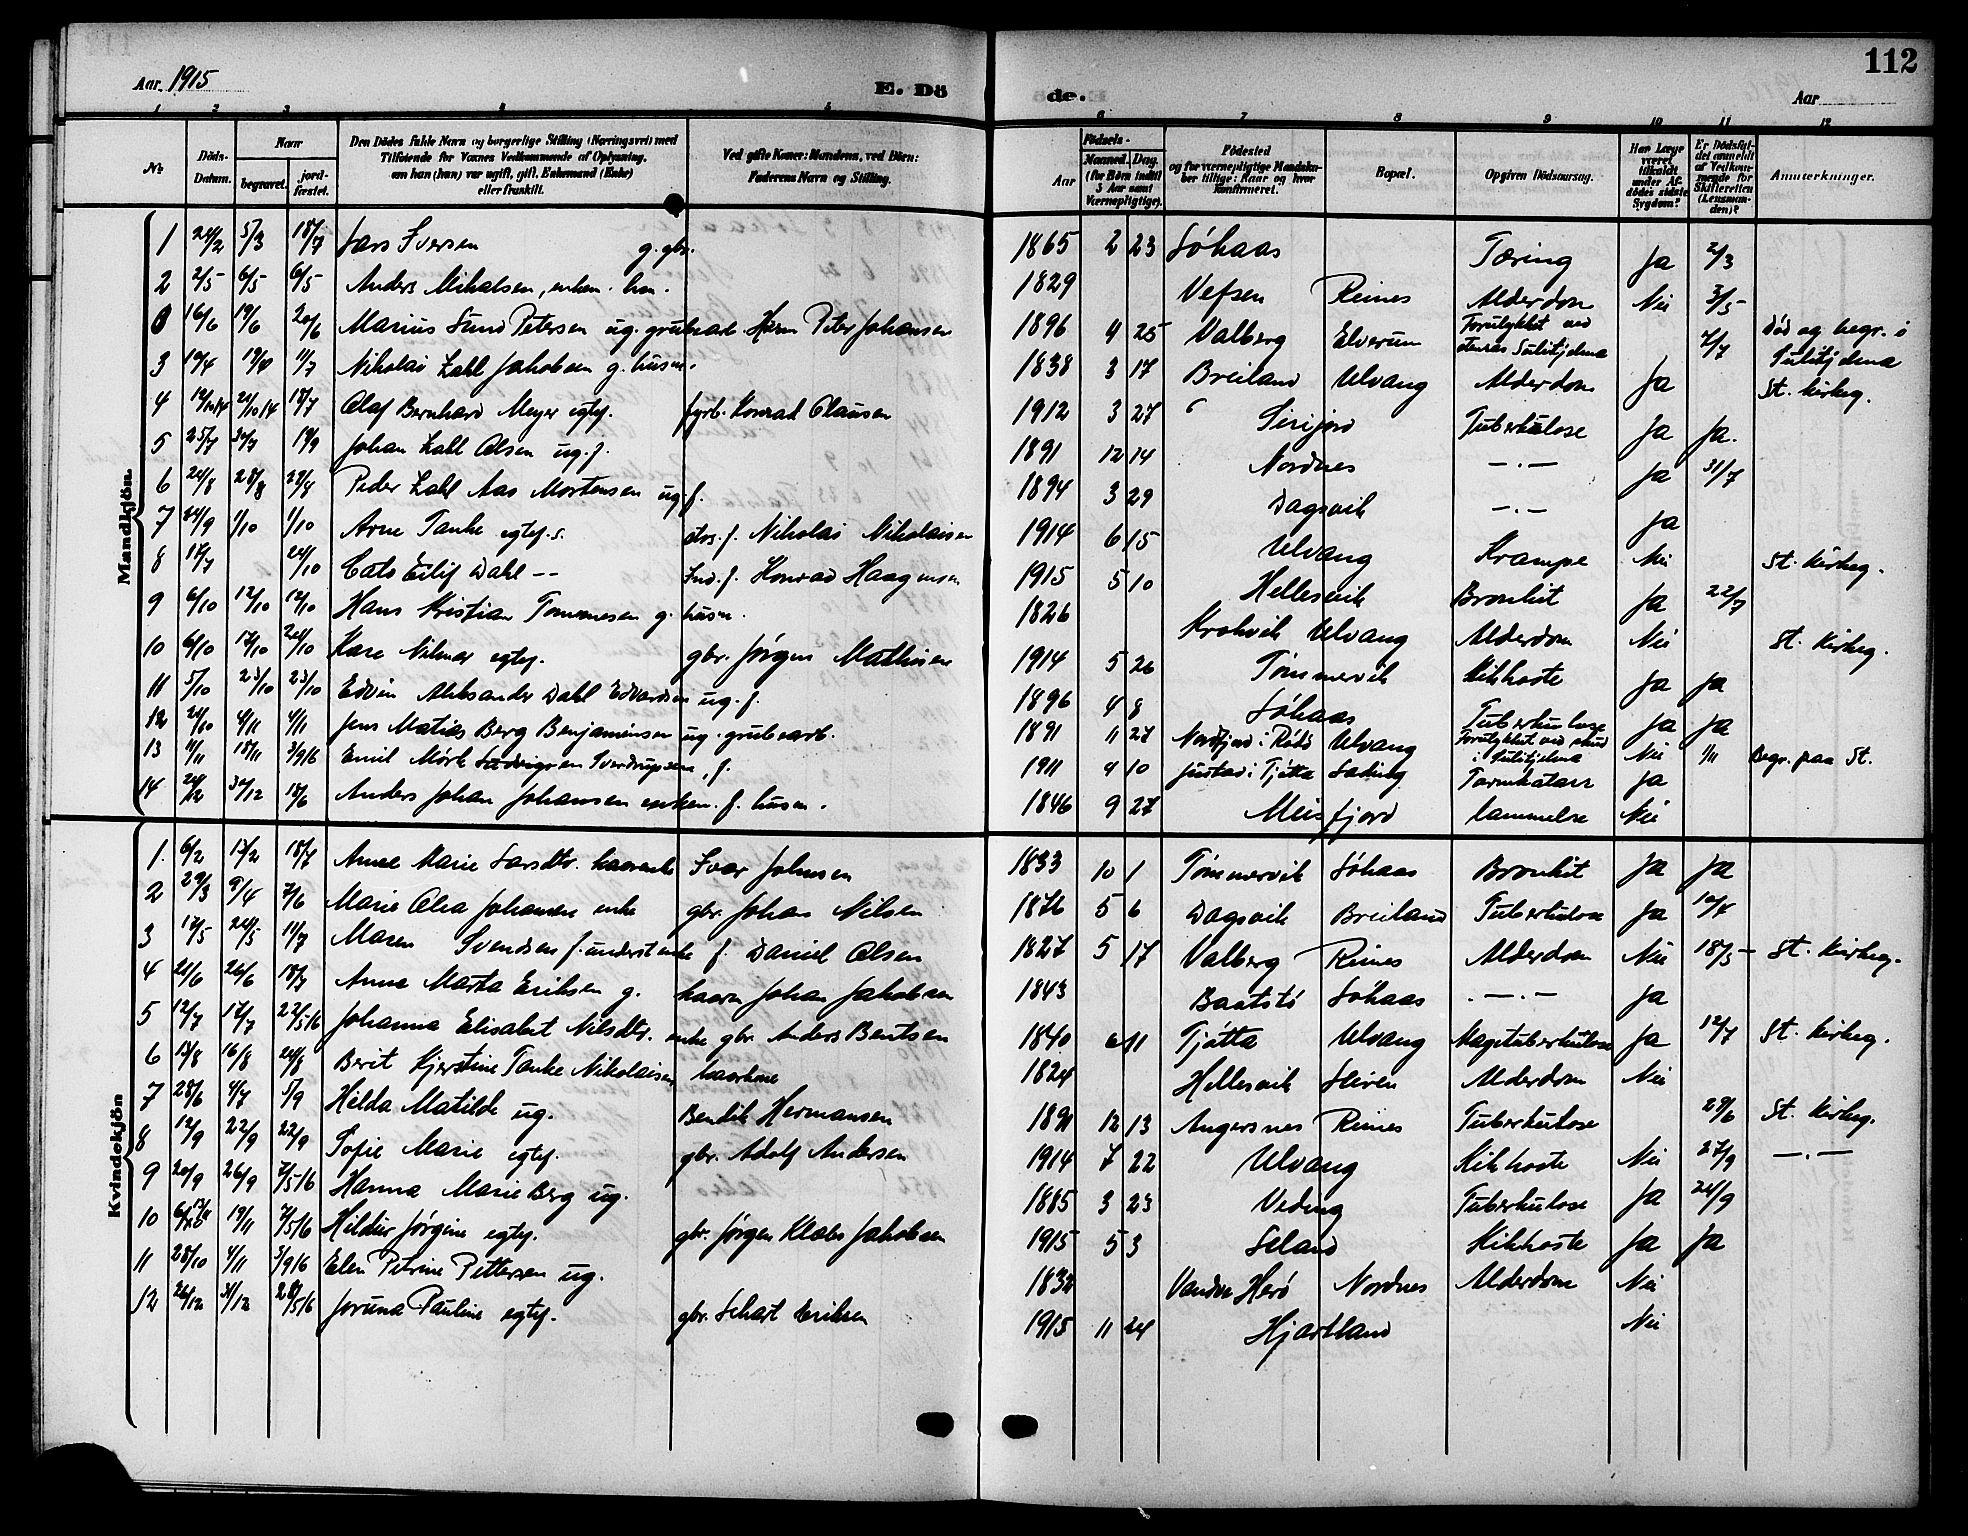 112
Aar 1915
E. Dö
de.
Aar
1 2 3 4 5
6 7 8 9 10 11 12
No.
Döds-Datum.
Naar
begravet.
jord-fæstet.
Den Dödes fulde Navn og borgerlige Stilling (Næringsvei) med
Tilføiende for Voxnes Vedkommende af Oplysning,
om han (hun) var ugift, gift, Enkemand (Enke)
eller fraskilt.
Ved gifte Koner: Mandens, ved Börn:
Faderens Navn og Stilling.
Aar
Födsels-
Maaned. Dag.
(for Börn indtil
3 Aar samt
Værnepligtige).
Födested
og for værnepligtige Mandska-
ber tillige: Naar og hvor
konfirmeret.
Bopæl.
Opgiven Dödsaarsag.
Har Læge
været
tilkaldt
under Af-
dödes sidste
Sygdom?
Er Dödsfal-
det anmeldt
af Vedkom-
mende for
Skifteretten
(Lensman-
den)?
Anmærkninger.
Mandkjön
1 24/2 5/3 18/7 Lars Iversen g. gbr. 1865 2 23 Løkaas Tæring Ja 2/3
2 2/5 6/5 6/5 Anders Mikalsen, enkem. 1829 Vefsen Reines Alderdom Nei 3/5
0 16/6 19/6 20/6 Marius Sund Petersen ug. grubearb. Herm Peter Johansen 1896 4 25 Valberg Elverum Forulykket ved Sulitjelma 7/7 Død og begr. i Sulitjelma
3 19/4 11/7 Nikolai Zahl Jakobsen g. husm. 1838 3 17 Breiland Ulvang Alderdom Ja St. kirkeg.
4 18/7 Olaf Bernhard Meyer egtef. fyrb. Konrad Clausen 1912 3 27 Sirijord Tuberkulose Ja Ja.
5 25/7 30/7 19/9 Johan Zahl Olsen ug. f. 1891 12 14 Nordnes — . — Ja 31/7
6 24/8 28/8 28/8 Peder Zahl Aas Mortensen ug. f. 1894 3 29 Dagsvik — . — Ja
7 24/9 1/10 1/10 Arne Tanke egtef. s. f. Nikolai Nikolaisen 1914 6 15 Ulvang Krampe Nei St. Kirkeg.
8 24/10 Cato Eilif Dahl -- Ind. f. Konrad Haagensen 1915 5 10 Hellesvik Bronkit Ja 22/7
9 6/10 12/10 12/10 Hans Kristian Tommesen g. husm. 1826 Krokvik Ulvang Alderdom Nei St. Kirkeg.
10 6/10 17/10 24/10 Kåre Hilmar egtef. gbr. Jørgen Mathisen 1914 5 26 Tømmervik Kikhoste Ja Ja
11 5/10 23/10 23/10 Edvin Aleksander Dahl Edvardsen ug. f. 1896 4 8 Løkaas Tuberkulose Ja Ja
12 24/10 4/11 4/11 Jens Matias Berg Benjaminsen ug. grubearb. 1891 11 27 Nordfjord i Rødø Ulvang Forulykket ved skud i Sulitjelma Nei 1/11 Begr. paa St.
13 11/11 18/11 3/9 16 Emil Mørk Sverdrupsen, f. 1911 4 10 i Tjøtta Tarmkatarr Ja
14 24/12 30/12 18/6 Anders Johan Johansen enkem. f. husm. 1846 9 27 Meisfjord Lammelse Nei
Kvindekjön
1. 6/2 17/2 18/7 Anne Marie Larsdtr. Ivar Johnsen 1833 10 1 Tømmervik Løkaas Bronkit Ja Ja
2 29/3 9/4 7/6 Marie Olea Johansen enke gbr. Johan Nilsen 1876 5 6 Dagsvik Breiland Tuberkulose Ja
3 24/5 11/7 Maren Svendsen f. underst enke f. Daniel Olsen 1827 5 17 Valberg Reines Alderdom Nei 18/5 St. Kirkeg.
4 21/6 26/6 18/7 Anna Marta Eriksen g. Johan Jakobsen 1843 Baatstø Løkaas — . — Ja
5 12/7 17/7 Johanna Elisabet Nilsdtr. enke gbr. Anders Bentsen 1840 6 11 Tjøtta Ulvang Magetuberkulose Ja 12/7 St. Kirkeg.
6 13/8 16/8 24/8 Berit Kjerstine Tanke Nikolaisen 1824 Hellesvik Alderdom Nei
7 28/6 4/7 5/9 Hilda Matilde ug. Bendik Hermansen 1891 12 13 Angersnes Reines Tuberkulose 29/6 St. Kirkeg.
8 12/9 22/9 22/9 Sofie Marie egtef. gbr. Adolf Andersen 1914 7 22 Ulvang Kikhoste Nei 27/9 — . —
9 20/9 26/9 7/5 16 Hanna Marie Berg ug. 1885 3 23 Veding Tuberkulose Ja 24/9
10 19/11 7/5 16 Hildur Jørgine egtef. gbr. Jørgen Klæbo Jakobsen 1915 5 3 Leland Kikhoste Ja Ja
11 28/10 4/11 3/9 16 Elen Petrine Pettersen ug. 1832 Herø Nordnes Alderdom Nei
12 26/12 31/12 28/5 16 Joruna Pauline egtef. gbr. Eriksen 1915 11 24 Hjartland Nei